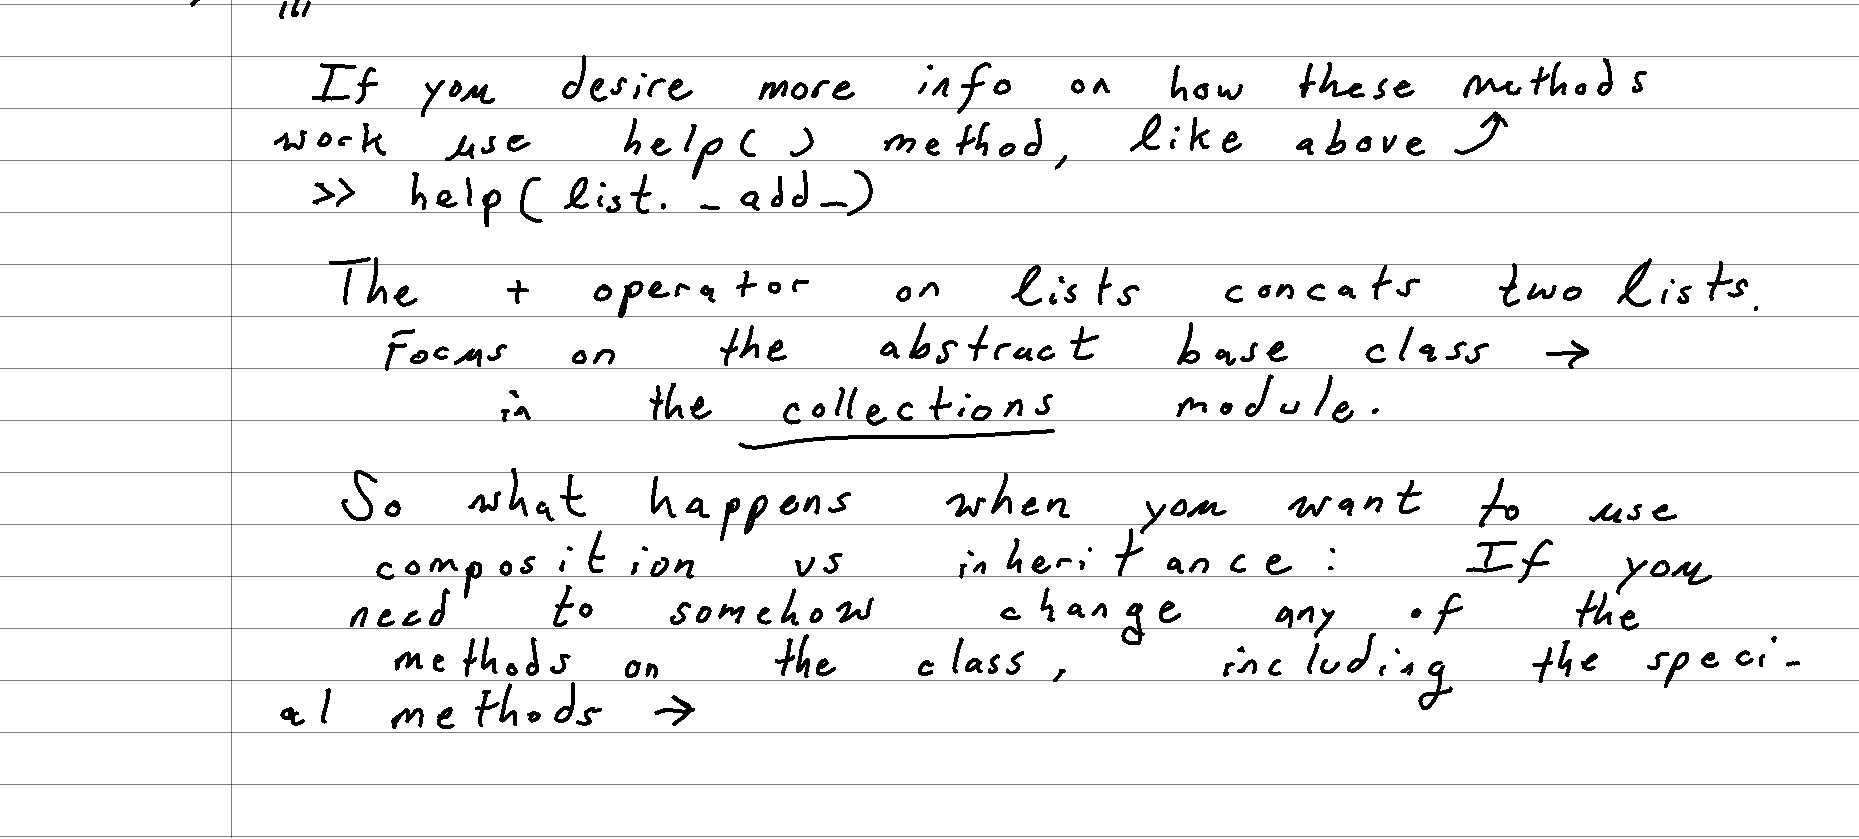 If you desire more info on how these methods
work use help() method, like above ⤴
>> help(list. _add_)
The + operator on lists concats two lists.
Focus on the abstract base class →
in the collections module.
So what happens when you want to use
composition vs inheritance: If you
need to somehow change any of the
methods on the class, including the speci-
al methods →